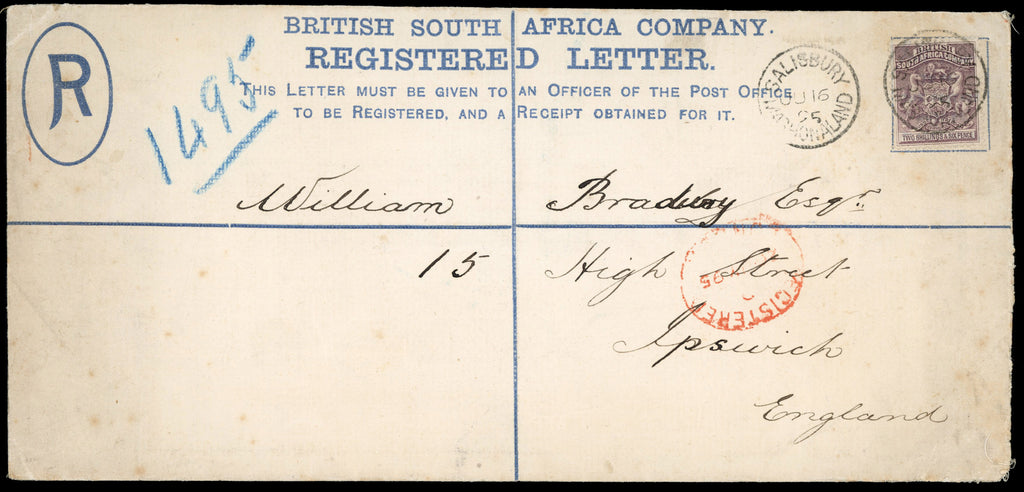 BRITISH SOUTH AFRICA COMPANY.
REGISTERED LETTER.
THIS LETTER MUST BE GIVEN TO AN OFFICER OF THE POST OFFICE
TO BE REGISTERED, AND A RECEIPT OBTAINED FOR IT.
R
1495
SALISBURY
JU 16
95
MASHONALAND
BRITISH
SOUTH AFRICA COMPANY
TWO SHILLINGS & SIX PENCE
William Bradbury Esqr.
15 High Street
Ipswich
England
REGISTERED
95